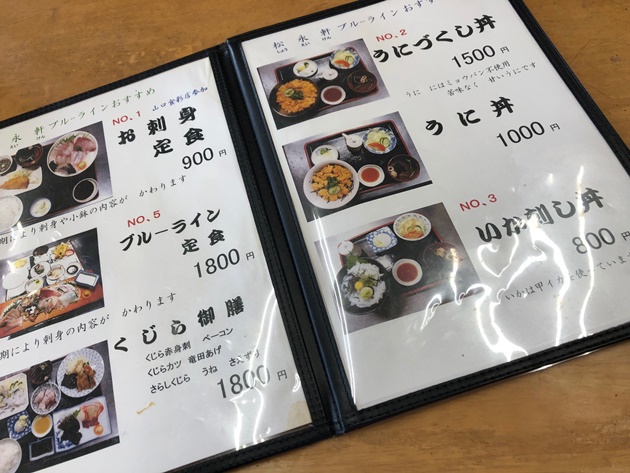 永 軒 ブルーラインおすすめ
えい けん
NO.1 山口食彩店参加
お刺身
定食
900円
期により刺身や小鉢の内容が かわります
NO.5
ブルーライン
定食
1800円
期により刺身の内容が かわります
くじら御膳
くじら赤身刺 ベーコン
くじらカツ 竜田あげ
さらしくじら うね さえずり
1800円
松 永 軒 ブルーラインおすす
しょう えい けん
NO.2
うにづくし丼
1500円
うに にはミョウバン不使用
苦味なく 甘いうにです
うに丼
1000円
NO.3
いか刺し丼
800円
いかは甲イカを使っています